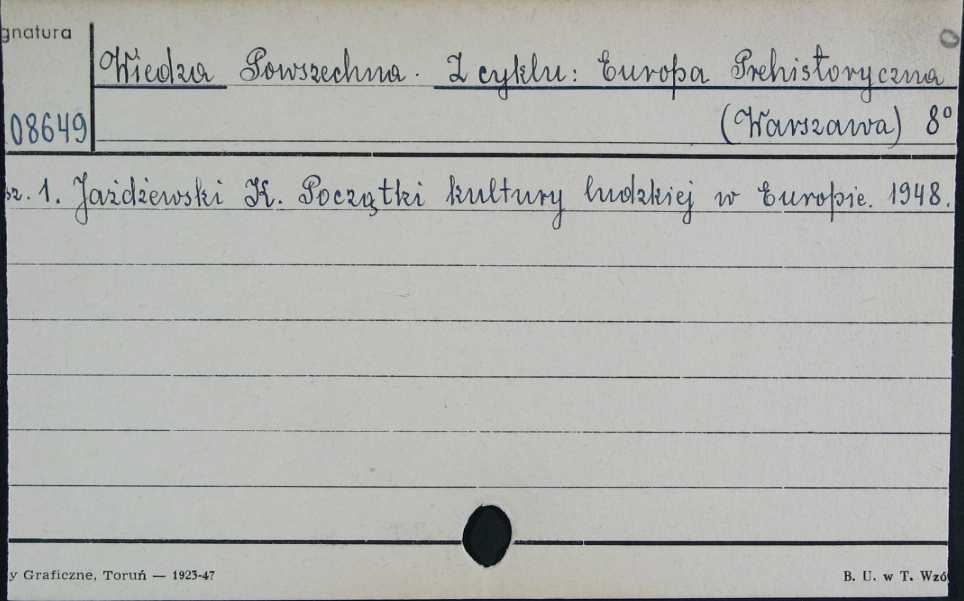 gnatura
Wiedza Powszechna. Z cyklu: Europa Prehistoryczna
08649 (Warszawa) 8°
sz. 1. Jażdżewski K. Początki kultury ludzkiej w Europie. 1948.
y Graficzne, Toruń — 1923-47 B. U. w T. Wzó